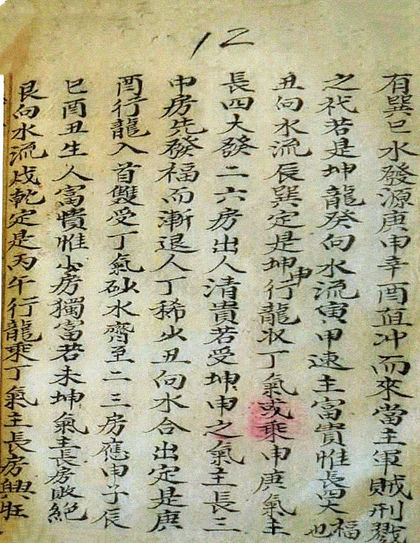 12
有巽巳水發源庚申辛酉直冲而來當主軍賊刑戮
之祧若是坤龍癸向水流寅甲速主富貴惟長四大福也
丑向水流辰巽定是坤申行龍收丁氣或乘申庚氣主
長四大發二六房出人清貴若受坤申之氣主長三
申房先發福而漸退人丁稀少丑向水合出定是庚
酉行龍入首雙受丁氣砂水齊至二三房應申子辰
巳酉丑生人富貴惟少房獨富若未坤氣主長房敗絕
艮向水流戌乾定是丙午行龍乘丁氣主長房興旺